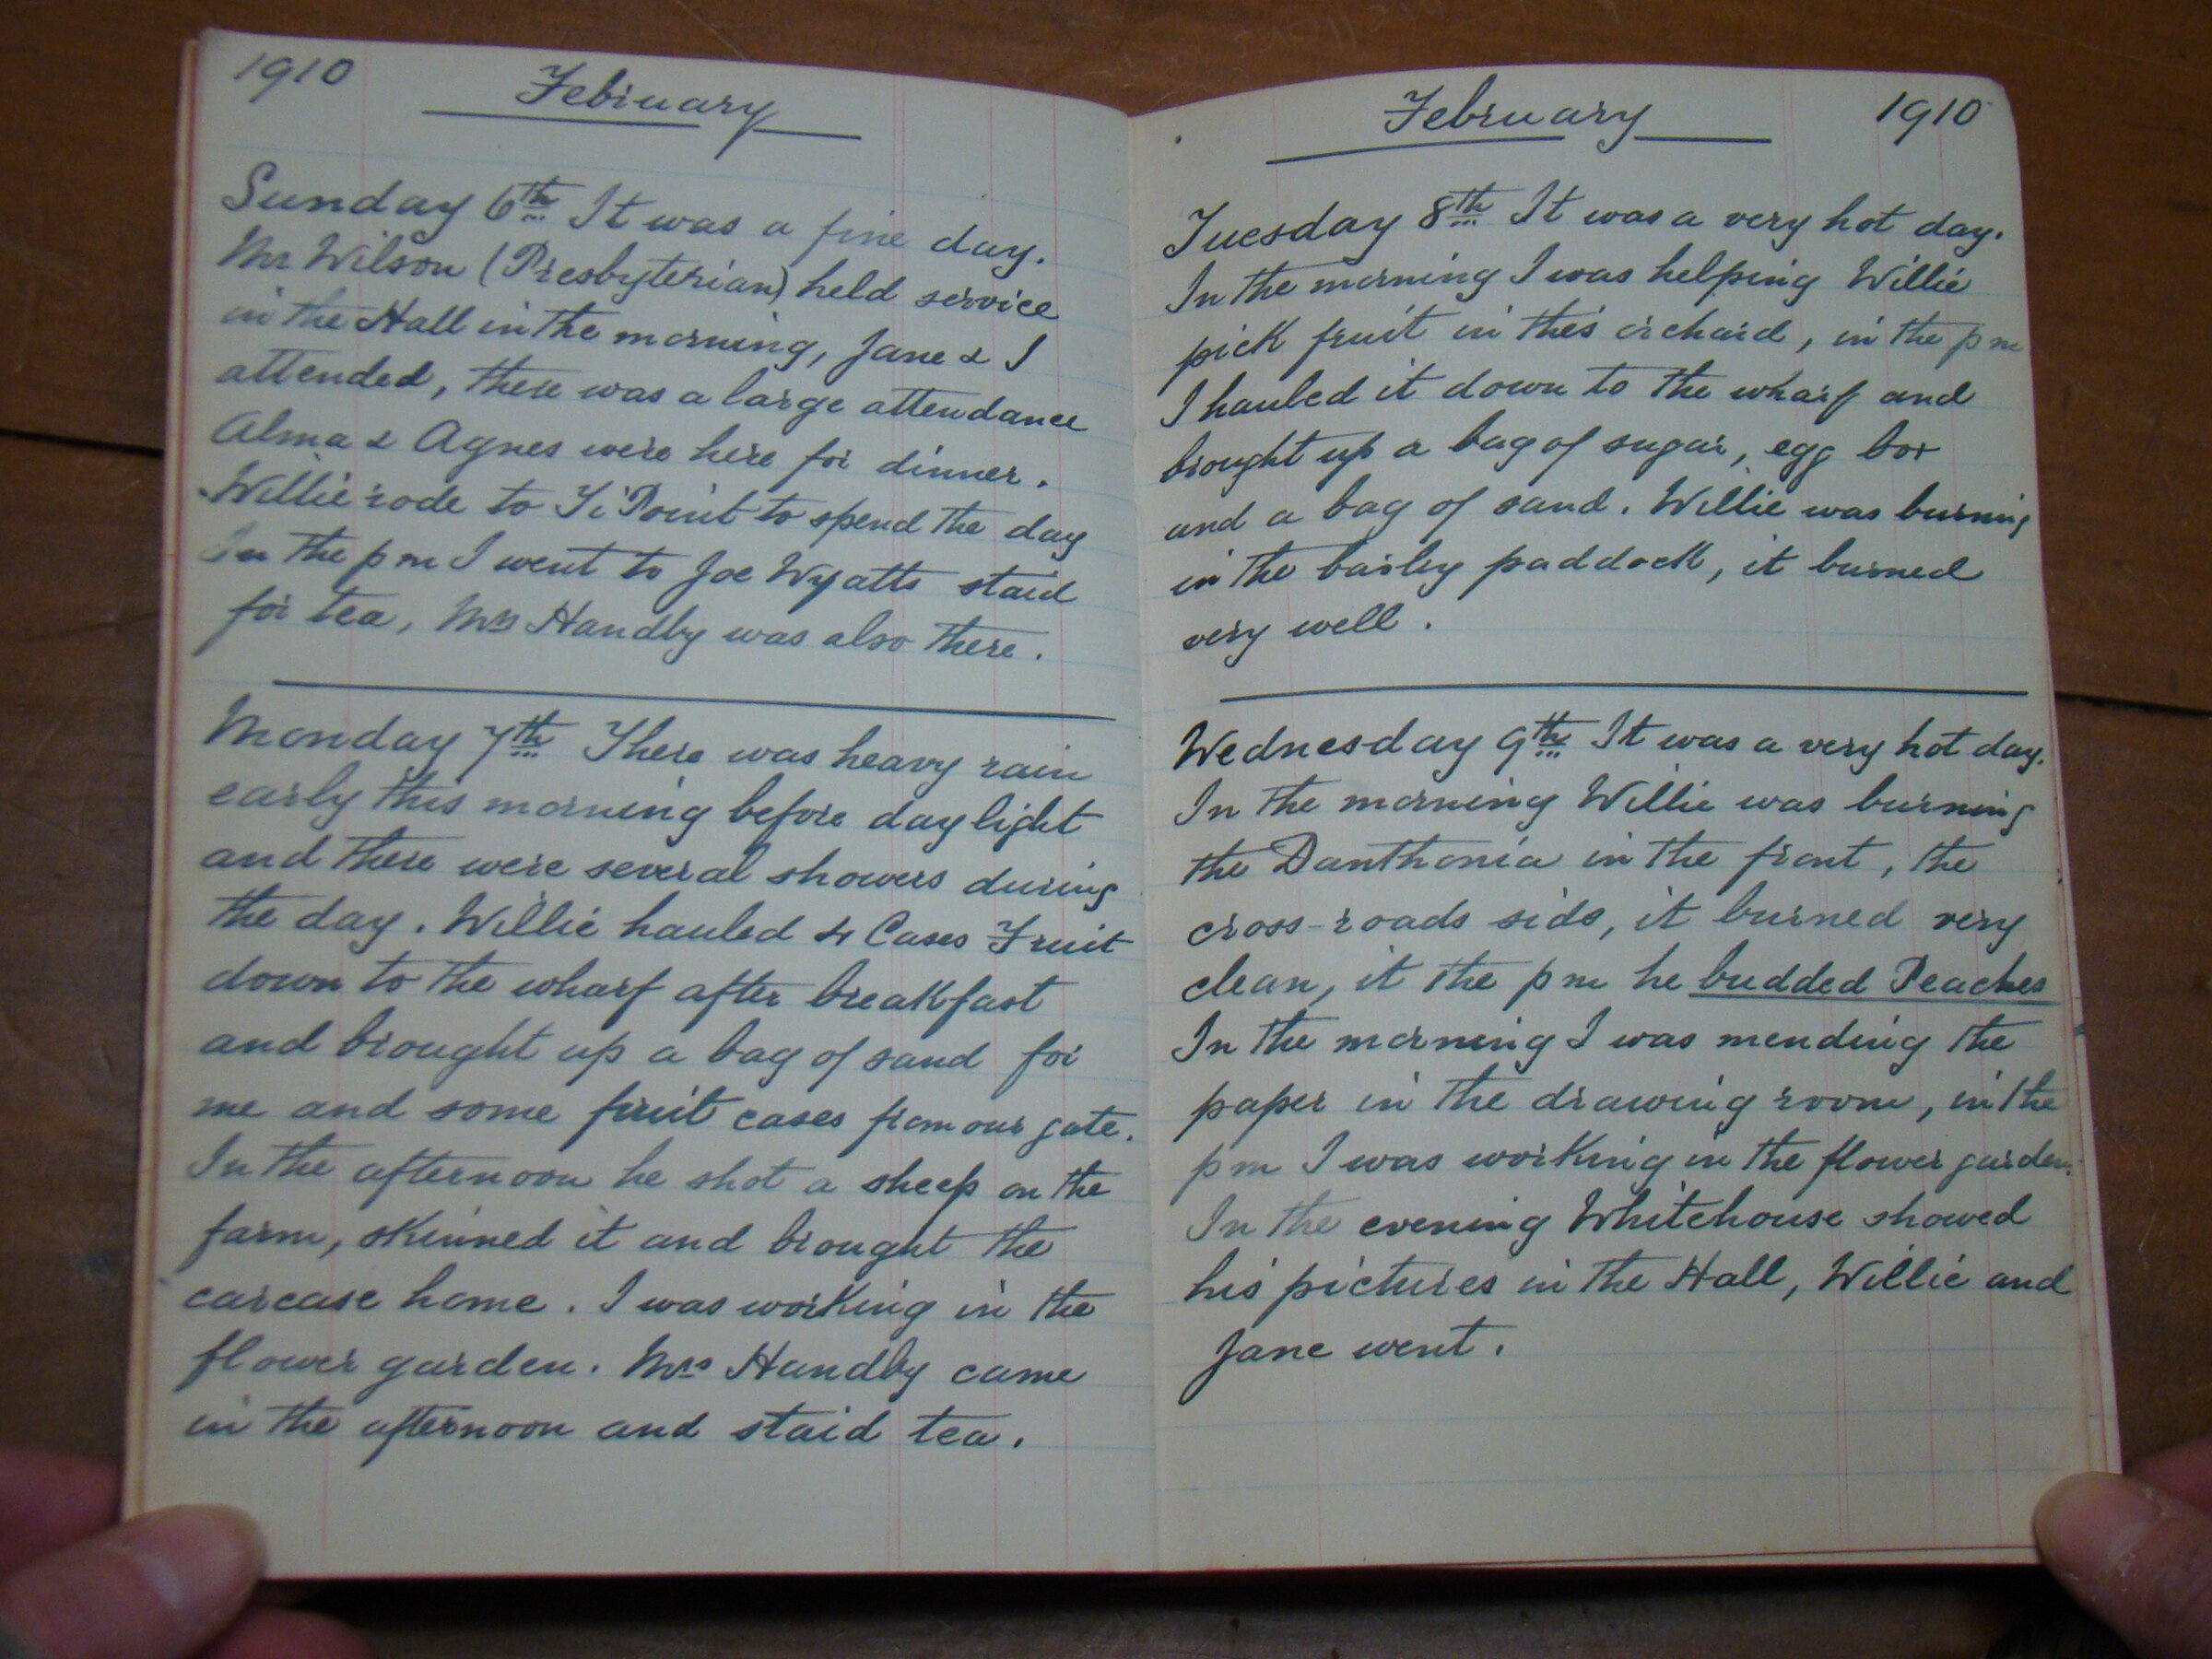 1910 February
Sunday 6th It was a fine day.
Mr Wilson (Presbyterian) held service
in the Hall in the morning, Jane & I
attended, there was a large attendance
Alma & Agnes were here for dinner.
Willie rode to Ti Point to spend the day
In the pm I went to Joe Wyatts staid
for tea, Mrs Handby was also there.
Monday 7th There was heavy rain
early this morning before daylight
and there were several showers during
the day. Willie hauled 4 Cases Fruit
down to the wharf after breakfast
and brought up a bag of sand for
me and some fruit cases from our gate.
In the afternoon he shot a sheep on the
farm, skinned it and brought the
carcase home. I was working in the
flower garden. Mrs Handby came
in the afternoon and staid tea.
February 1910
Tuesday 8th It was a very hot day.
In the morning I was helping Willie
pick fruit in this orchard, in the pm
I hauled it down to the wharf and
brought up a bag of sugar, egg box
and a bag of sand. Willie was burning
in the barley paddock, it burned
very well.
Wednesday 9th It was a very hot day.
In the morning Willie was burning
the Danthonia in the front, the
cross-roads side, it burned very
clean, it the pm he budded Peaches
In the morning I was mending the
paper in the drawing room, in the
pm I was working in the flower garden.
In the evening Whitehouse showed
his pictures in the Hall, Willie and
Jane went.